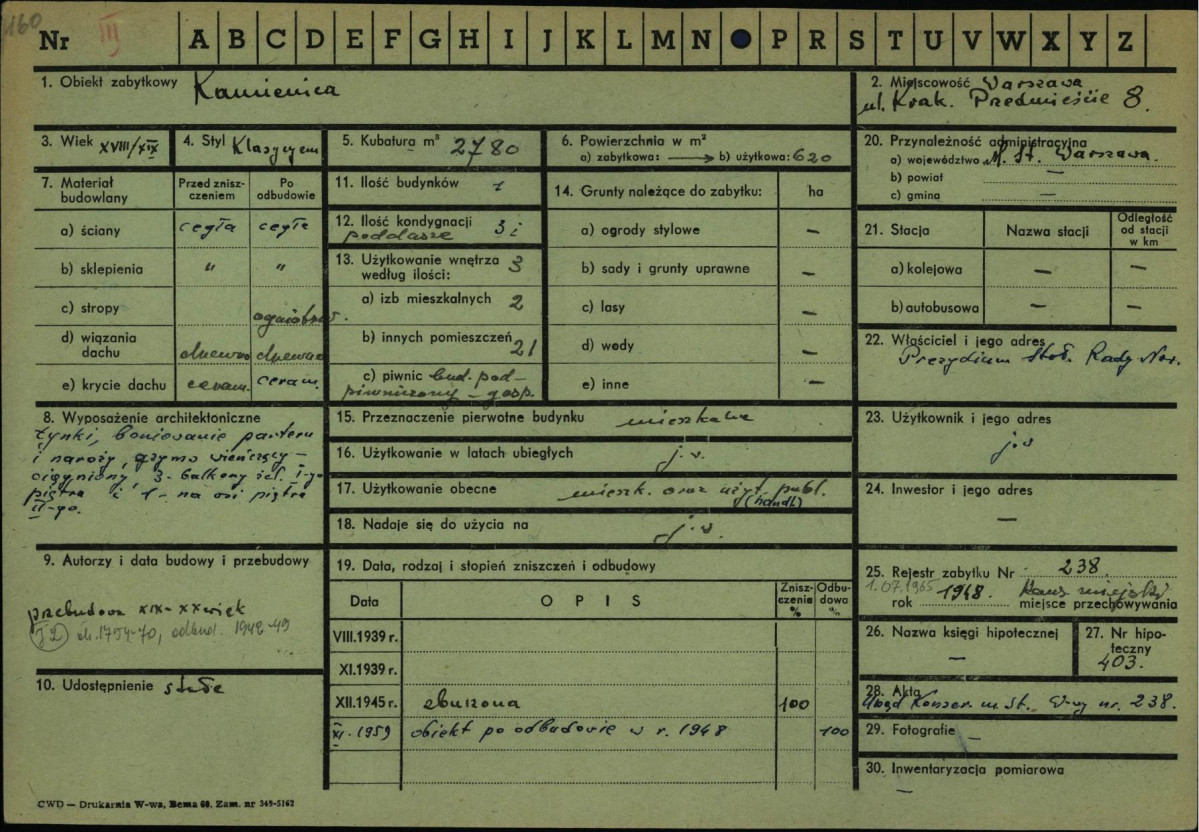 160
Nr III A B C D E F G H I J K L M N P R S T U V W X Y Z
1. Obiekt zabytkowy Kamienica
2. Miejscowość Warszawa
ul. Krak. Przedmieście 8.
3. Wiek XVIII/XIX
4. Styl Klasycyzm
5. Kubatura m³ 2780
6. Powierzchnia w m²
a) zabytkowa: → b) użytkowa: 620
20. Przynależność administracyjna
a) województwo M. St. Warszawa.
b) powiat —
c) gmina —
7. Materiał budowlany
Przed zniszczeniem
Po odbudowie
a) ściany cegła cegła
b) sklepienia " "
c) stropy ogniotrw.
d) wiązania dachu drewno drewno
e) krycie dachu ceram. ceram.
11. Ilość budynków 1
12. Ilość kondygnacji 3 i
poddasze
13. Użytkowanie wnętrza
według ilości: 3
a) izb mieszkalnych 2
b) innych pomieszczeń 21
c) piwnic bud. pod-
piwniczony – gosp.
14. Grunty należące do zabytku: ha
a) ogrody stylowe —
b) sady i grunty uprawne —
c) lasy —
d) wody —
e) inne —
21. Stacja
Nazwa stacji
Odległość
od stacji
w km
a) kolejowa — —
b) autobusowa — —
22. Właściciel i jego adres
Prezydium Stoł. Rady Nar.
8. Wyposażenie architektoniczne
tynki, boniowanie parteru
i naroży, gzyms wieńczący –
ciągniony, 3 - balkony żel. I-go
piętra i 1 - na osi piętra
II-go.
15. Przeznaczenie pierwotne budynku mieszkalne
16. Użytkowanie w latach ubiegłych j. w.
17. Użytkowanie obecne mieszk. oraz użyt. publ.
(handl.)
18. Nadaje się do użycia na j. w.
23. Użytkownik i jego adres
j.w
24. Inwestor i jego adres
—
9. Autorzy i data budowy i przebudowy
przebudowa XIX-XX wiek
ok. 1754-70, odbud. 1948-49
10. Udostępnienie stałe
19. Data, rodzaj i stopień zniszczeń i odbudowy
Data
OPIS
Zniszczenie
%
Odbudowa
%
VIII.1939 r.
XI.1939 r.
XII.1945 r. zburzona 100
XI. 1959 obiekt po odbudowie w r. 1948 100
25. Rejestr zabytku Nr 238.
1.07.1965
rok 1948. Kons. miejski
miejsce przechowywania
26. Nazwa księgi hipotecznej
—
27. Nr hipoteczny
403.
28. Akta
Urząd Konser. m. St. W-wy nr. 238.
29. Fotografie —
30. Inwentaryzacja pomiarowa
—
CWD — Drukarnia W-wa, Bema 60. Zam. nr 349-5162